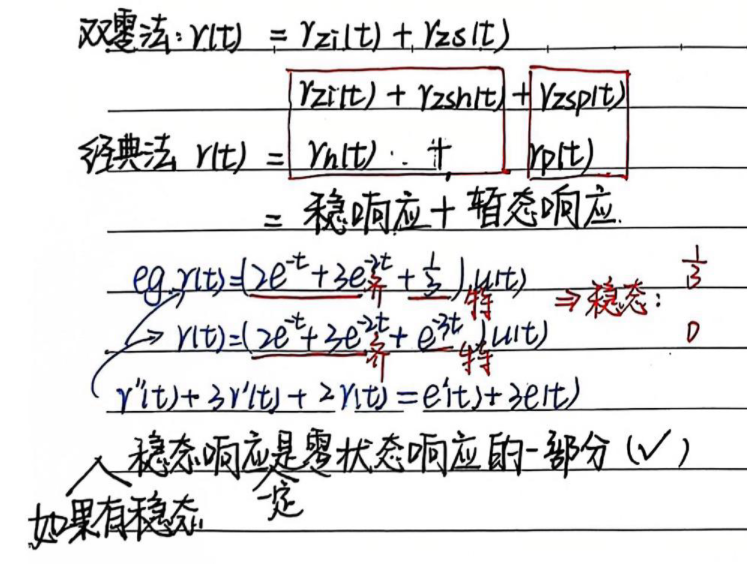 双零法: r(t) = rzi(t) + rzs(t)
rzi(t) + rzsh(t) + rzsp(t)
经典法 r(t) = rh(t) + rp(t)
= 稳响应 + 暂态响应.
eg. r(t)=(2e^{-t}+3e^{-2t}+1/3)u(t) 齐 特 ⇒ 稳态: 1/3
→ r(t)=(2e^{-t}+3e^{-2t}+e^{-3t})u(t) 齐 特 0
r''(t)+3r'(t)+2r(t)=e'(t)+3e(t)
稳态响应是零状态响应的一部分 (✓)
如果有稳态 一定